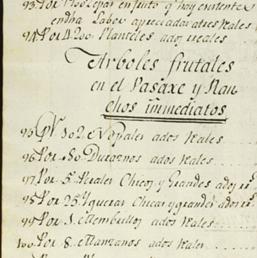 93 Por 1700 Zepas en fruto y hay existentes
endha Labor apreciada ados reales
94 Por 4200 Planteles ados reales
Arboles frutales
en el Pasaxe y Ran
chos immediatos
95 Por 102 Nopales ados reales
96 Por 80 Duraznos ados reales
97 Por 5 Perales Chicos y Grandes ados rs.
98 Por 25 Igueras Chicas y grandes ados rs.
99 Por 1 Membrillos ados reales
100 Por 8 Manzanos ados reales